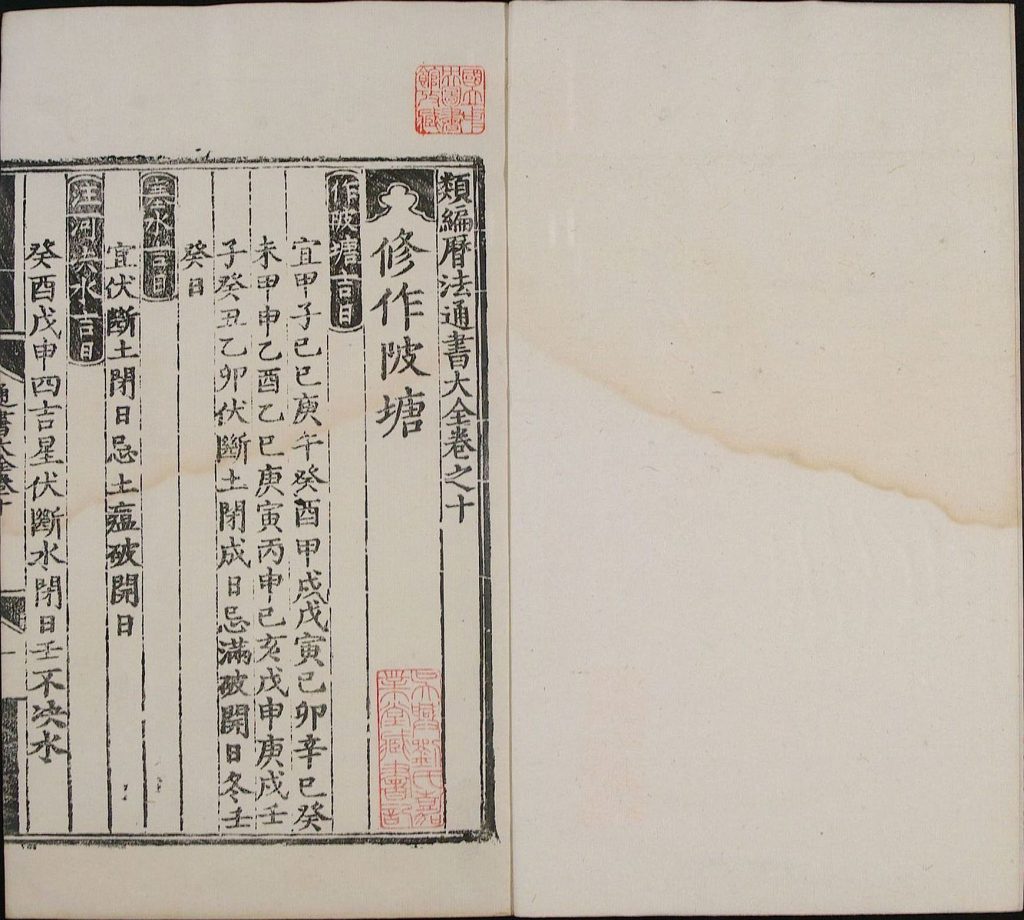 國立中央圖書館收藏
類編曆法通書大全卷之十
修作陂塘
吳興劉氏嘉業堂藏書記
作陂塘吉日
宜甲子己巳庚午癸酉甲戌戊寅己卯辛巳癸
未甲申乙酉乙巳庚寅丙申己亥戊申庚戌壬
子癸丑乙卯伏斷土閉成日忌滿破開日冬壬
癸日
水吉日
宜伏斷土閉日忌土瘟破開日
水吉日
癸酉戊申四吉星伏斷水閉日壬不决水
通書大全卷十